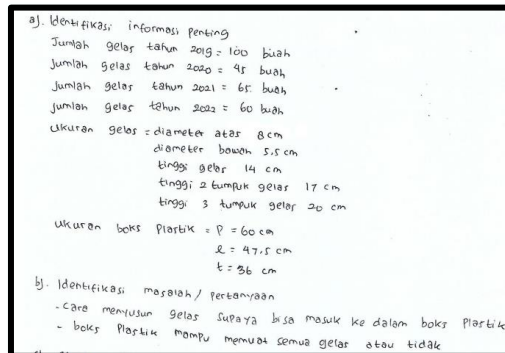 a). Identifikasi informasi penting
Jumlah gelas tahun 2019 = 100 buah
Jumlah gelas tahun 2020 = 45 buah
Jumlah gelas tahun 2021 = 65 buah
Jumlah gelas tahun 2022 = 60 buah
Ukuran gelas = diameter atas 8 cm
diameter bawah 5,5 cm
tinggi gelas 14 cm
tinggi 2 tumpuk gelas 17 cm
tinggi 3 tumpuk gelas 20 cm
Ukuran boks Plastik = P = 60 cm
l = 47,5 cm
t = 36 cm
b). Identifikasi masalah / pertanyaan
- Cara menyusun gelas supaya bisa masuk ke dalam boks Plastik
- boks Plastik mampu memuat semua gelas atau tidak